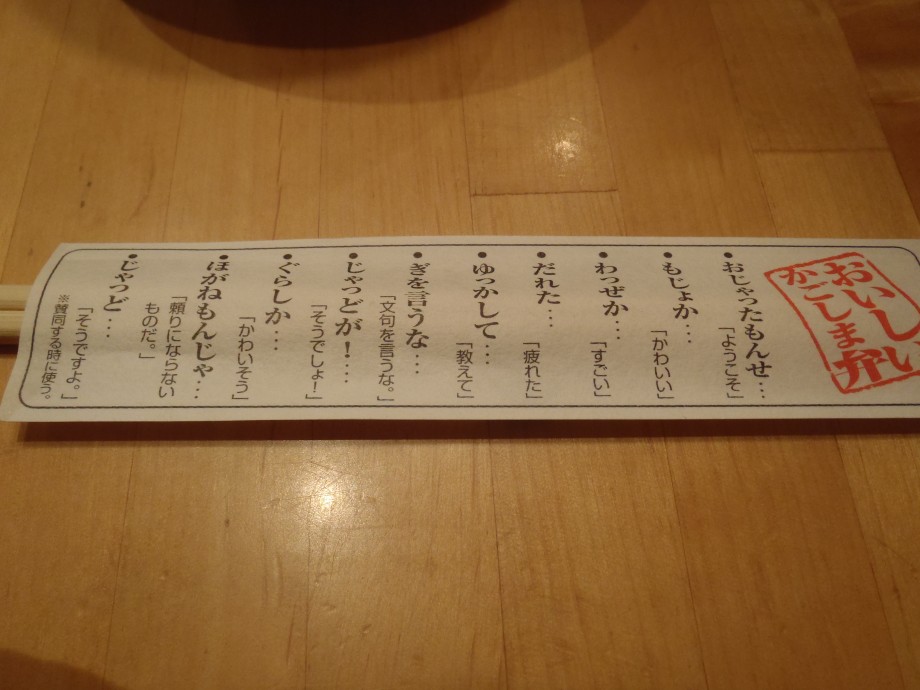 おいしい
かごしま弁
●おじゃったもんせ…
「ようこそ」
●もじょか…
「かわいい」
●わっぜか…
「すごい」
●だれた…
「疲れた」
●ゆっかして…
「教えて」
●ぎを言うな…
「文句を言うな。」
●じゃっどが！…
「そうでしょ！」
●ぐらしか…
「かわいそう」
●ほがねもんじゃ…
「頼りにならない
ものだ。」
●じゃっど…
「そうですよ。」
※賛同する時に使う。